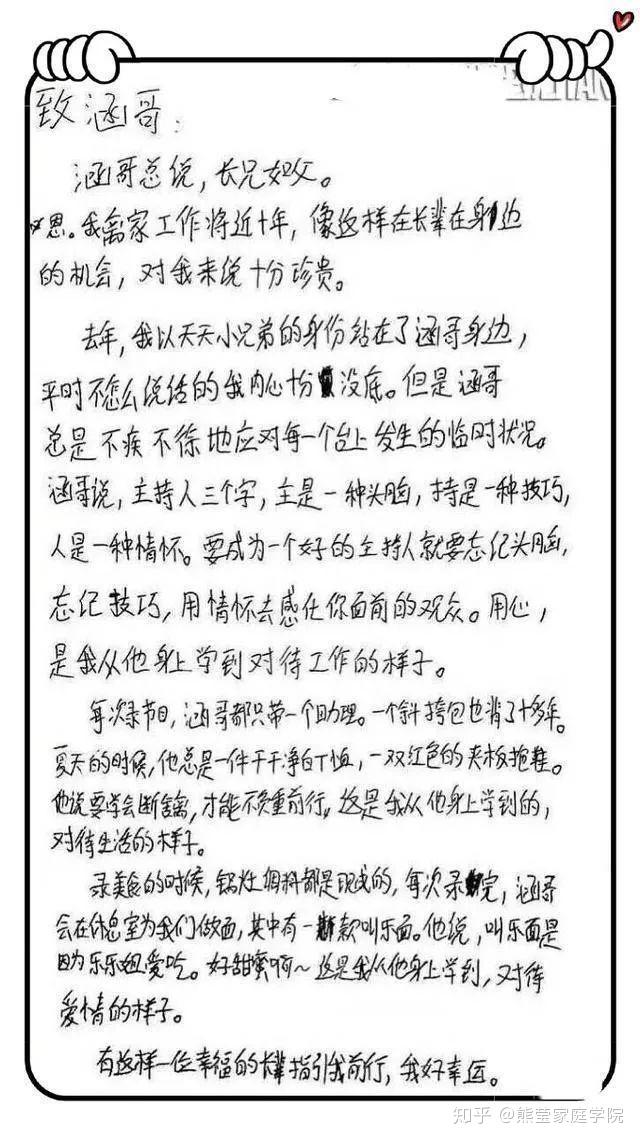 致涵哥:
涵哥总说,长兄如父。
恩。我离家工作将近十年,像这样在长辈在身边
的机会,对我来说十分珍贵。
去年,我以天天小兄弟的身份站在了涵哥身边,
平时不怎么说话的我内心十分没底。但是涵哥
总是不疾不徐地应对每一个台上发生的临时状况。
涵哥说,主持人三个字,主是一种头脑,持是一种技巧,
人是一种情怀。要成为一个好的主持人就要忘记头脑,
忘记技巧,用情怀去感化你面前的观众。用心,
是我从他身上学到对待工作的样子。
每次录节目,涵哥都只带一个助理。一个斜挎包也背了十多年。
夏天的时候,他总是一件干干净白T恤,一双红色的夹板拖鞋。
他说要学会断舍离,才能不负重前行。这是我从他身上学到的,
对待生活的样子。
录美食的时候,锅灶调料都是现成的,每次录完,涵哥
会在休息室为我们做面,其中有一款叫乐面。他说,叫乐面是
因为乐乐姐爱吃。好甜蜜啊~这是我从他身上学到,对待
爱情的样子。
有这样一位幸福的长辈指引我前行,我好幸运。
知乎 @熊莹家庭学院